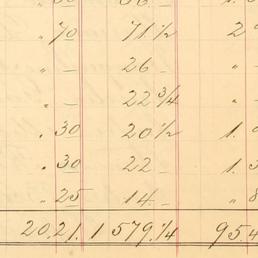 " 70 71 1/2 2
" — 26 — "
" — 22 3/4 "
" 30 20 1/2 1.
" 30 22 — 1.
" 25 14 — "
20.21. 1 579.1/4 95.4